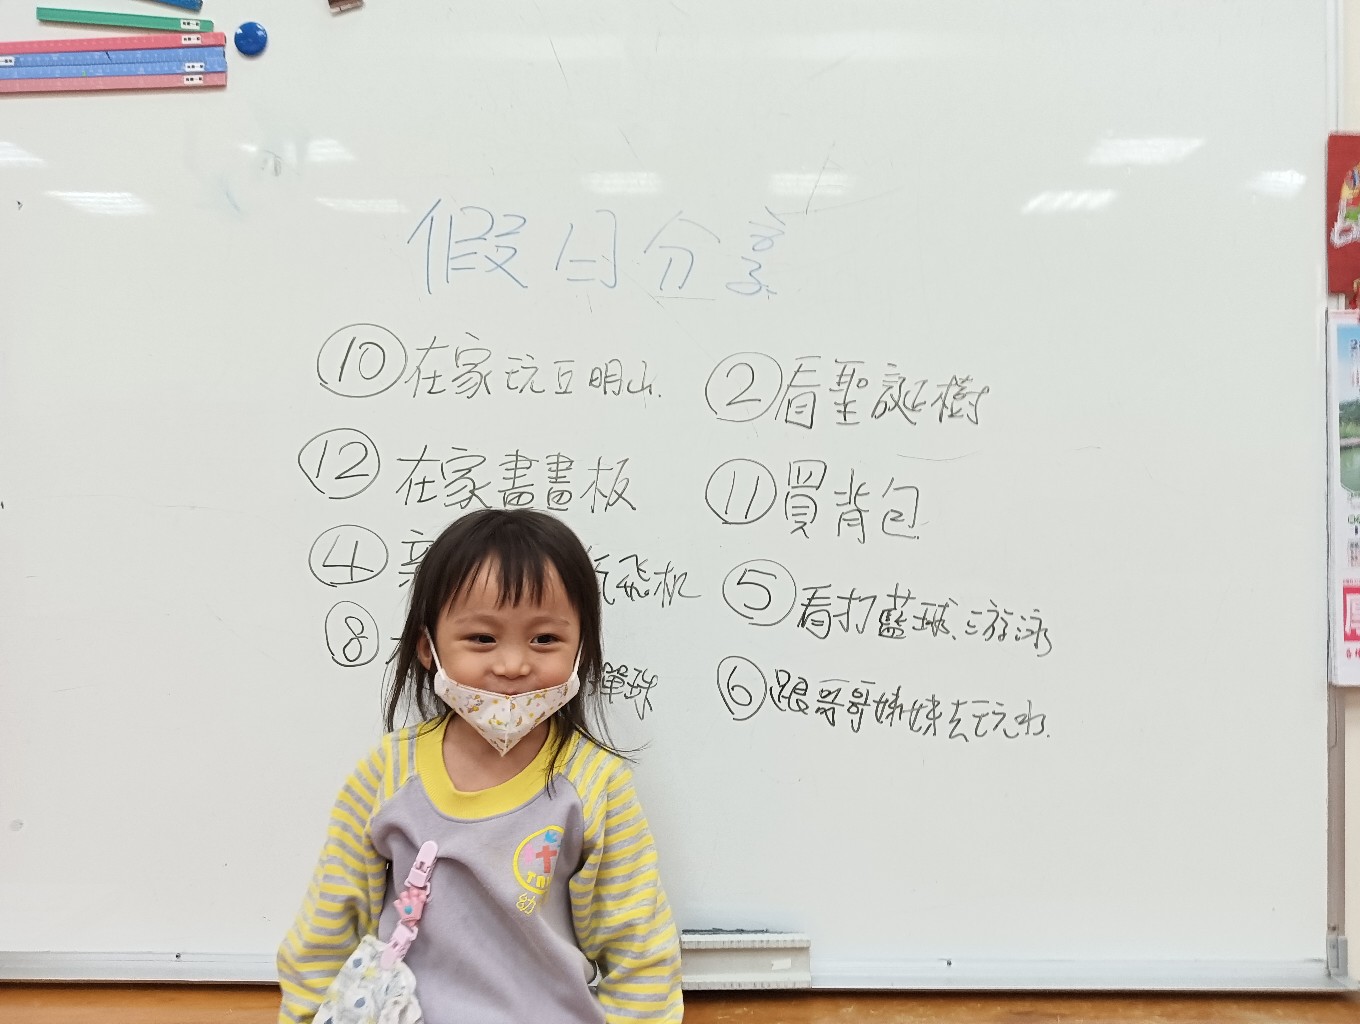 假日分享
⑩在家玩豆明山.
⑫在家畫畫板
④親 飛机
⑧ 彈珠
②看聖誕樹
⑪買背包
⑤看打籃球、游泳
⑥跟哥哥姊妹去玩水.
幼